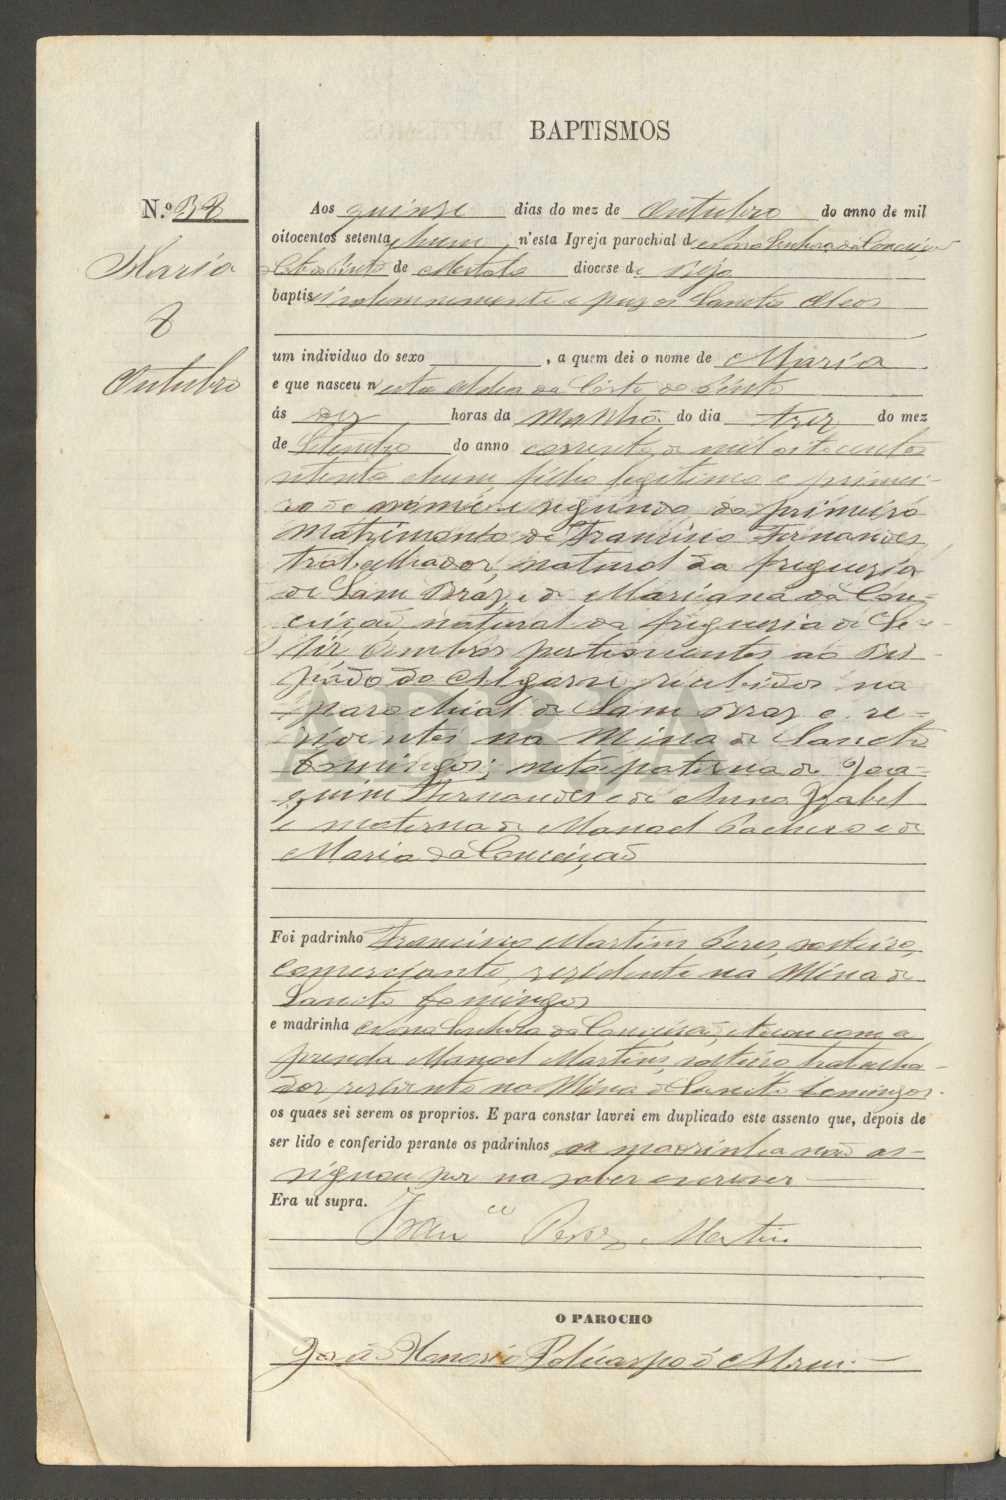 BAPTISMOS
N.º 38
Maria
8
Outubro
Aos quinse dias do mez de Outubro do anno de mil
oitocentos setenta e hum, n'esta Igreja parochial de Nossa Senhora da Conceição
de Mertola diocese de Beja
baptisei solemnemente e puz os Sanctos Oleos
um individuo do sexo , a quem dei o nome de Maria
e que nasceu n'esta Aldea da Côrte do Pinto
ás dez horas da Manhã do dia trez do mez
de Setembro do anno corrente de mil oitocentos
setenta e hum, filha legitima e primei-
ra de nome e segunda do primeiro
Matrimonio de Francisco Fernandes,
trabalhador, natural da freguezia
de Sam Braz, e de Mariana da Con-
ceição, natural da freguesia de
ambos pertencentes ao Bis-
pado do Algarve recebidos na
parochial de Sam Braz e re-
sidentes na Mina de Sancto
Domingos; neta paterna de Joa-
quim Fernandes e de Anna Izabel
e materna de Manoel Pacheco e de
Maria da Conceição
Foi padrinho Francisco Martins Peres, solteiro,
Comerciante, residente na Mina de
Sancto Domingos
e madrinha Nossa Senhora da Conceição, tocou com a
prenda Manoel Martins, solteiro trabalha-
dor, residente na Mina de Sancto Domingos.
os quaes sei serem os proprios. E para constar lavrei em duplicado este assento que, depois de
ser lido e conferido perante os padrinhos a madrinha não as-
signou por na saber escrever
Era ut supra.
Fran.co Perez Martin
O PAROCHO
José Honorio Policarpo